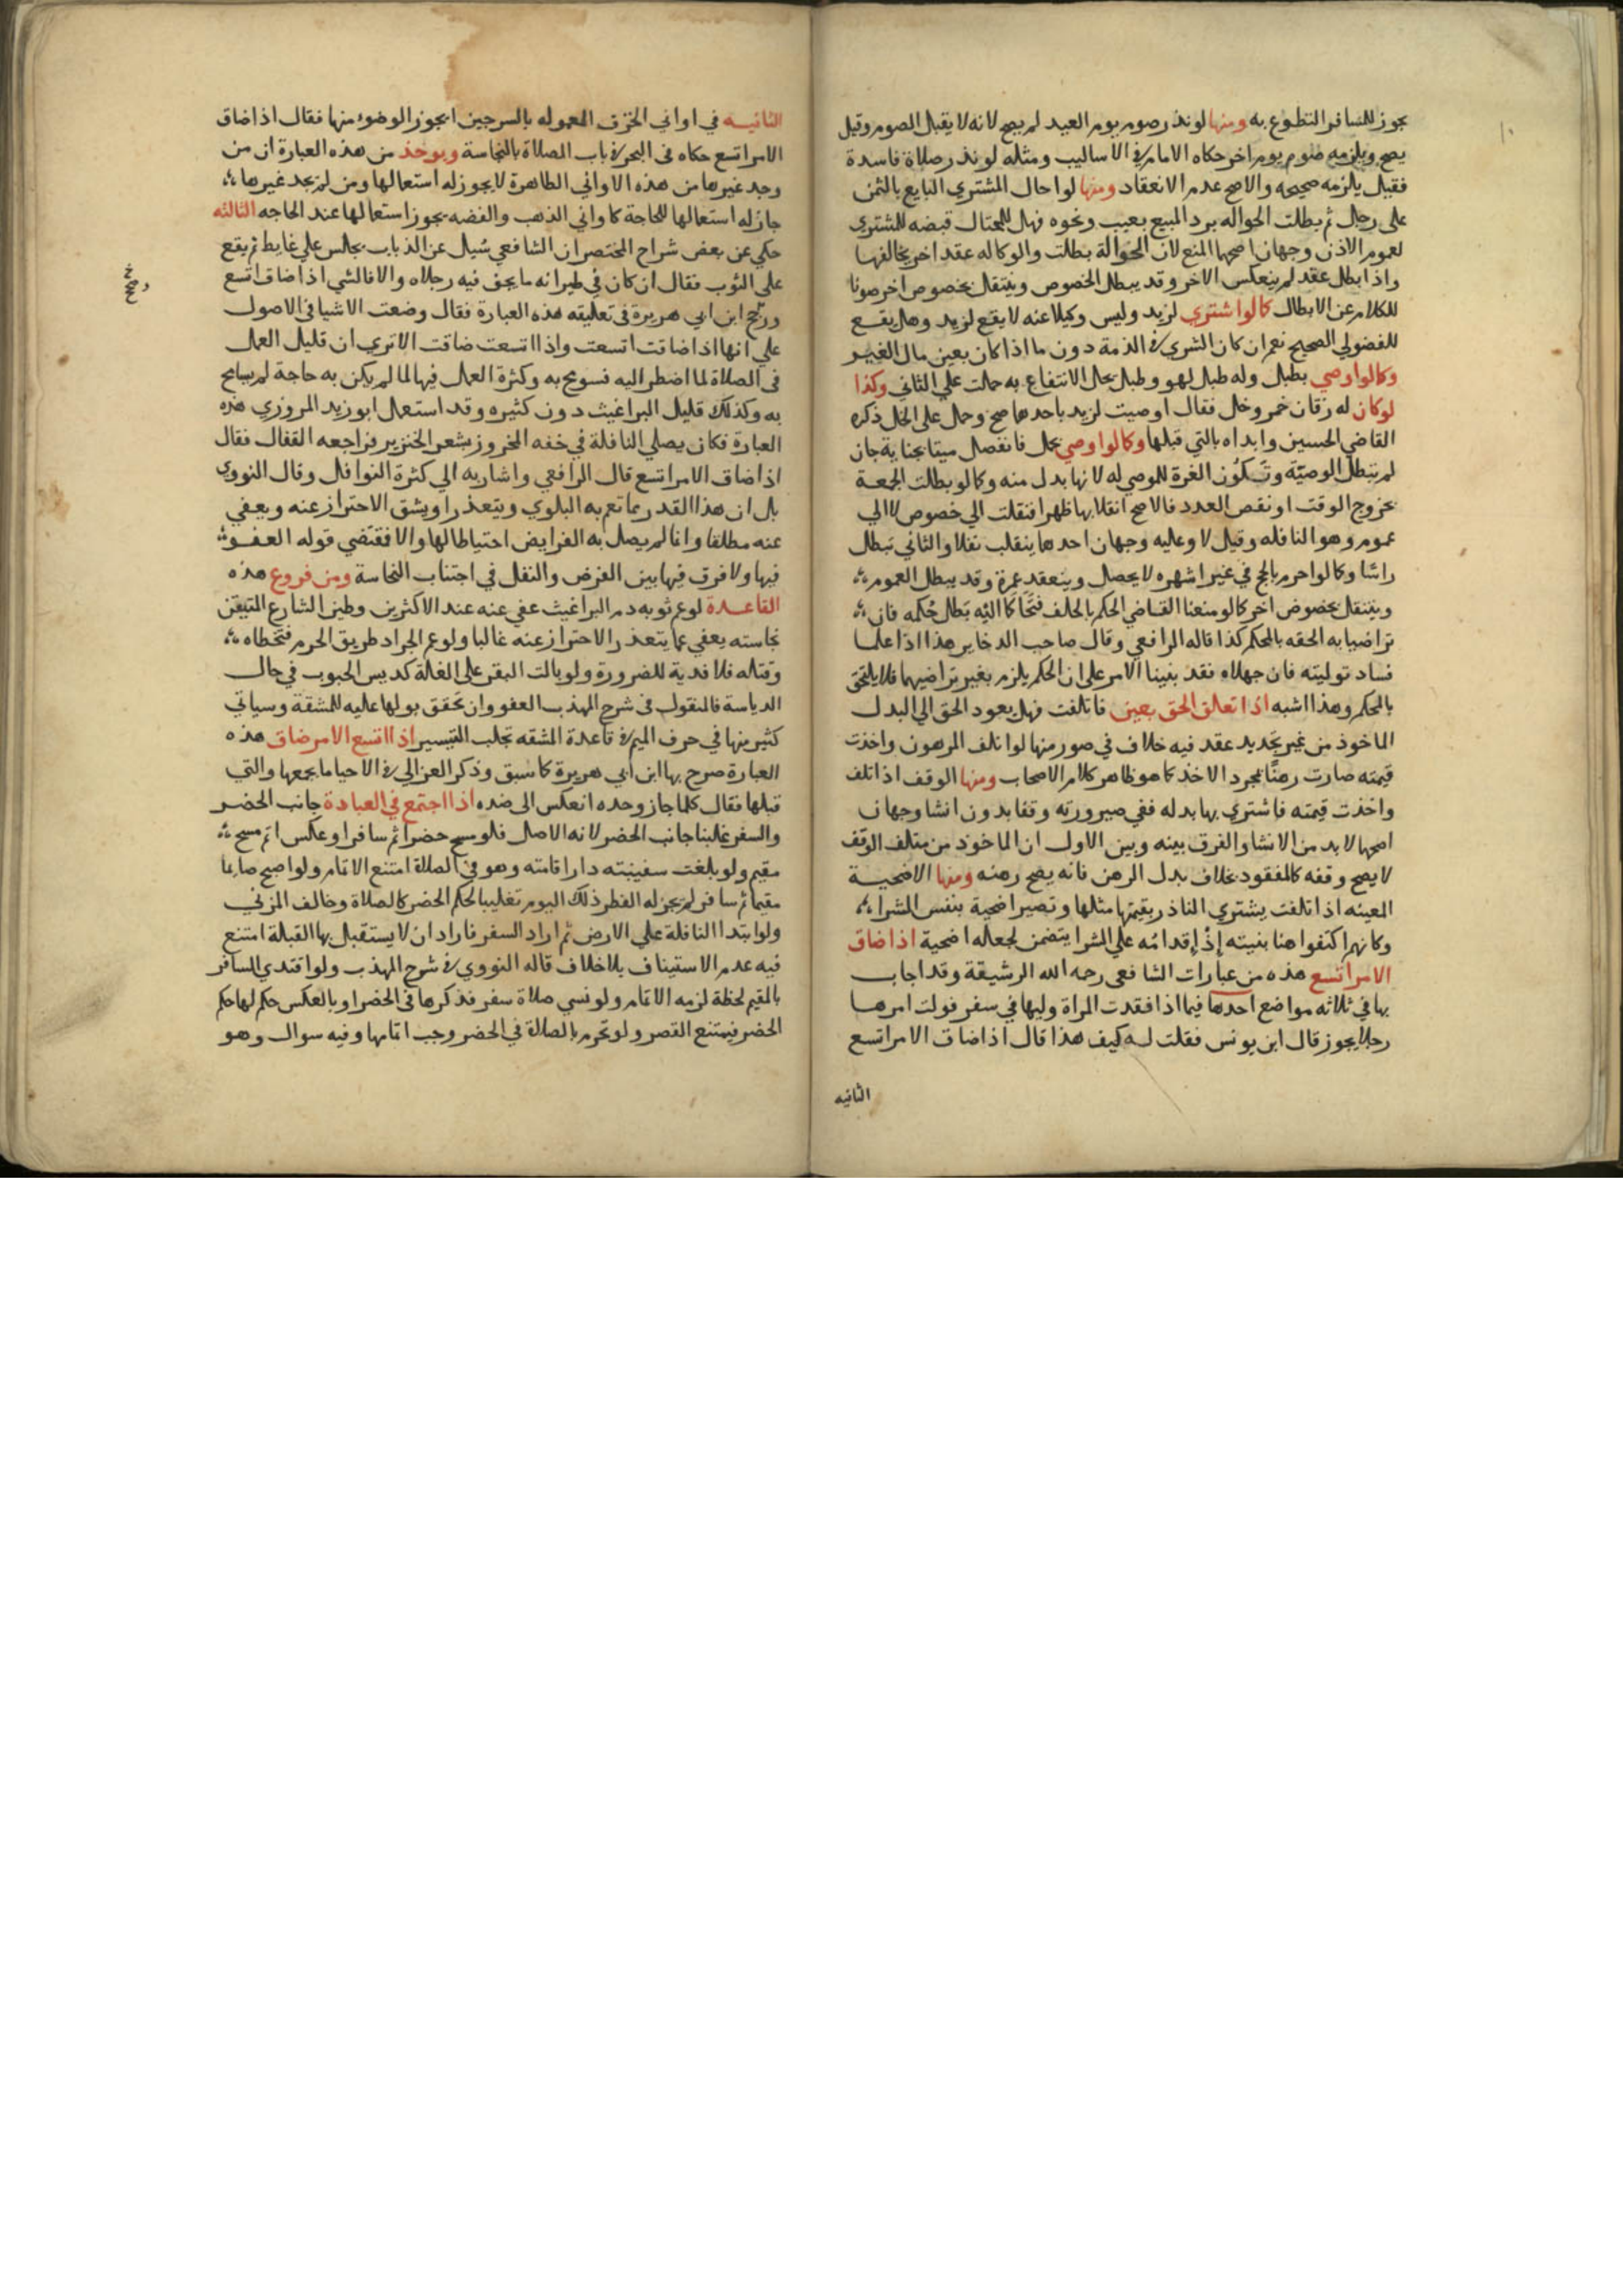 يجوز للمسافر التطوع به ومنها لو نذر صوم يوم العيد لم يصح لانه لا يقبل الصوم وقيل
يصح ويلزمه صوم يوم اخر حكاه الامام في الاساليب ومثله لو نذر صلاة فاسدة
فقيل يلزمه صحيحه والاصح عدم الانعقاد ومنها لو احال المشتري البايع بالثمن
على رجل ثم بطلت الحواله برد المبيع بعيب ونحوه فهل للمحتال قبضه للمشتري
لعموم الاذن وجهان اصحهما المنع لان الحوالة بطلت والوكاله عقد اخر يخالفها
واذا بطل عقد لم ينعكس الاخر وقد يبطل الخصوص وينتقل بخصوص اخر صونا
للكلام عن الابطال كما لو اشتري لزيد وليس وكيلا عنه لا يقع لزيد وهل يقع
للفضولي الصحيح نعم ان كان الشري في الذمة دون ما اذا كان بعين مال الغير
وكما لو اوصي بطبل وله طبل لهو وطبل يحل الانتفاع به حملت علي الثاني وكذا
لو كان له زقان خمر وخل فقال اوصيت لزيد باحدهما صح وحمل على الخل ذكره
القاضي الحسين وابداه بالتي قبلها وكما لو اوصي بحمل فانفصل ميتا بجناية جان
لم تبطل الوصية وتكون الغرة للموصي له لانها بدل منه وكما لو بطلت الجمعة
بخروج الوقت او نقص العدد فالاصح انقلابها ظهرا فنقلت الي خصوص لا الي
عموم وهو النافله وقيل لا وعليه وجهان احدهما ينقلب نفلا والثاني تبطل
راسا وكما لو احرم بالحج في غير اشهره لا يحصل وينعقد عمرة وقد يبطل العموم
وينتقل بخصوص اخر كما لو منعنا القاضي الحكم بالحلف فتحاكما اليه بطل حكمه فان
تراضيا به الحقه بالمحكم كذا قاله الرافعي وقال صاحب الدخاير هذا اذا علما
فساد توليته فان جهلاه فقد بنينا الامر على ان الحكم يلزم بغير تراضيهما فلا يلتحق
بالمحكم وهذا اشبه اذا تعلق الحق بعين فاتلفت فهل يعود الحق الي البدل
الماخوذ من غير تجديد عقد فيه خلاف في صور منها لو اتلف المرهون واخذت
قيمته صارت رهنًا بمجرد الاخذ كما هو ظاهر كلام الاصحاب ومنها الوقف اذا تلف
واخذت قيمته فاشتري بها بدله ففي صيرورته وقفا بدون انشا وجهان
اصحها لا بد من الانشا والفرق بينه وبين الاول ان الماخوذ من متلف الوقف
لا يصح وقفه كالمفقود بخلاف بدل الرهن فانه يصح رهنه ومنها الاضحية
المعينه اذا تلفت يشتري الناذر بقيمتها مثلها وتصير اضحية بنفس الشرا
وكانهم اكتفوا هنا بنيته إذ إقدامه علي الشرا يتضمن لجعله اضحية اذا ضاق
الامر اتسع هذه من عبارات الشافعي رحمه الله الرشيقة وقد اجاب
بها في ثلاثه مواضع احدها فيما اذا فقدت المراة وليها في سفر فولت امرها
رجلا يجوز قال ابن يونس فقلت له كيف هذا قال اذا ضاق الامر اتسع
الثانيه
الثانيه في اواني الخزف المعموله بالسرجين ايجوز الوضوء منها فقال اذا ضاق
الامر اتسع حكاه في البحر في باب الصلاة بالنجاسة ويوخذ من هذه العبارة ان من
وجد غيرها من هذه الاواني الطاهرة لا يجوز له استعمالها ومن لم يجد غيرها
جاز له استعمالها للحاجة كاواني الذهب والفضه يجوز استعمالها عند الحاجه الثالثه
حكي عن بعض شراح المختصر ان الشافعي سُيل عن الذباب يجالس علي غايط ثم يقع
على الثوب فقال ان كان في طيرانه ما يجف فيه رجلاه والا فالشي اذا ضاق اتسع
ورجح ابن ابي هريرة في تعليقه هذه العبارة فقال وضعت الاشيا في الاصول
علي انها اذا ضاقت اتسعت واذا اتسعت ضاقت الا تري ان قليل العمل
في الصلاة لما اضطر اليه فسومح به وكثرة العمل فيها لما لم يكن به حاجة لم يسامح
به وكذلك قليل البراغيث دون كثيره وقد استعمل ابو زيد المروزي هذه
العبارة فكان يصلي النافلة في خفه المخروز بشعر الخنزير فراجعه القفال فقال
اذا ضاق الامر اتسع قال الرافعي واشار به الي كثرة النوافل وقال النووي
بل ان هذا القدر مما تعم به البلوي ويتعذر او يشق الاحتراز عنه ويعفي
عنه مطلقا وانما لم يصل به الفرايض احتياطا لها والا فقتضي قوله العفو
فيها ولا فرق فيها بين الفرض والنفل في اجتناب النجاسة ومن فروع هذه
القاعدة لو عم ثوبه دم البراغيث عفي عنه عند الاكثرين وطين الشارع المتيقن
نجاسته يعفي عما يتعذر الاحتراز عنه غالبا ولو عم الجراد طريق الحرم فتخطاه
وقتله فلا فدية للضرورة ولو بالت البقر على الغلة كديس الحبوب في حال
الدياسة فالمنقول في شرح المهذب العفو وان تحقق بولها عليه للمشقة وسياتي
كثير منها في حرف الميم في قاعدة المشقه تجلب التيسير اذا اتسع الامر ضاق هذه
العبارة صرح بها ابن ابي هريرة كما سبق وذكر الغزالي في الاحيا ما يجمعها والتي
قبلها فقال كلما جاز وحده انعكس الى ضده اذا اجتمع في العبادة جانب الحضر
والسفر غلبنا جانب الحضر لانه الاصل فلو مسح حضرا ثم سافر او عكس اتم مسح
مقيم ولو بلغت سفينته دار اقامته وهو في الصلاة امتنع الاتمام ولو اصبح صايما
مقيما ثم سافر لم يجز له الفطر ذلك اليوم تغليبا لحكم الحضر كالصلاة وخالف المزني
ولو ابتدا النافلة علي الارض ثم اراد السفر فاراد ان لا يستقبل بها القبلة امتنع
فيه عدم الاستيناف بلا خلاف قاله النووي في شرح المهذب ولو اقتدي المسافر
بالمقيم لحظة لزمه الاتمام ولو نسي صلاة سفر فذكرها في الحضر او بالعكس حكم لها حكم
الحضر فيمتنع القصر ولو تحرم بالصلاة في الحضر وجب اتمامها وفيه سوال وهو